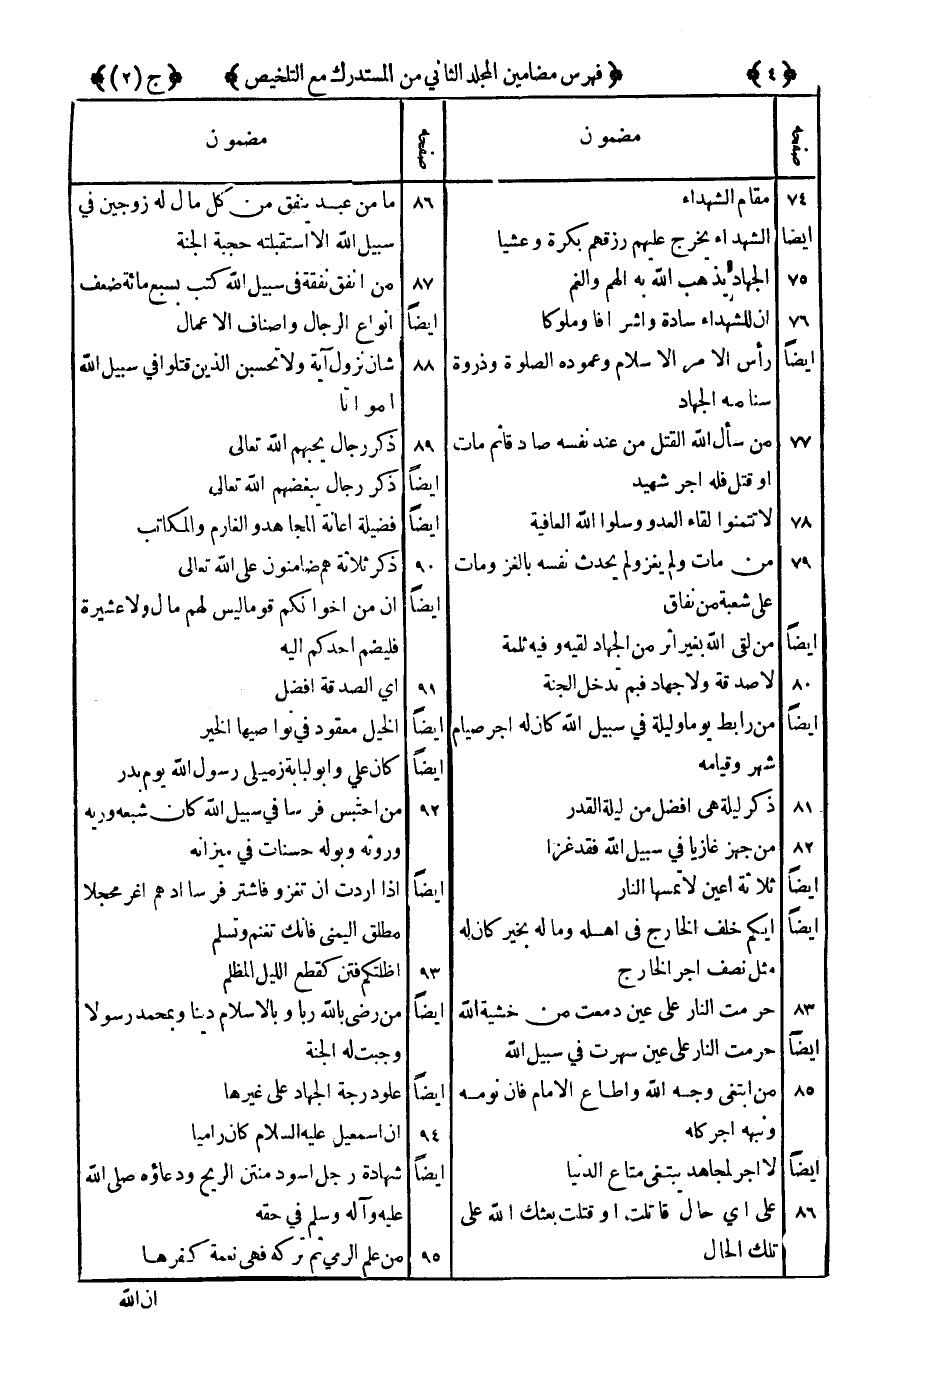 ﴿٤﴾ ﴿فهرس مضامين المجلد الثاني من المستدرك مع التلخيص﴾ ﴿ج (٢)﴾
صفحه مضمون
٧٤ مقام الشهداء
ايضا الشهداء يخرج عليهم رزقهم بكرة وعشيا
٧٥ الجهاد يذهب الله به الهم والغم
٧٦ ان للشهداء سادة واشرافا وملوكا
ايضاً رأس الامر الاسلام وعموده الصلوة وذروة
سنامه الجهاد
٧٧ من سأل الله القتل من عند نفسه صادقا ثم مات
او قتل فله اجر شهيد
٧٨ لا تتمنوا لقاء العدو وسلوا الله العافية
٧٩ من مات ولم يغز ولم يحدث نفسه بالغز ومات
على شعبة من نفاق
ايضاً من لقى الله بغير اثر من الجهاد لقيه وفيه ثلمة
٨٠ لا صدقة ولا جهاد فبم تدخل الجنة
ايضاً من رابط يوما وليلة في سبيل الله كان له اجر صيام
شهر وقيامه
٨١ ذكر ليلة هى افضل من ليلة القدر
٨٢ من جهز غازيا في سبيل الله فقد غزا
ايضاً ثلاثة اعين لا تمسها النار
ايضاً ايكم خلف الخارج فى اهله وماله بخير كان له
مثل نصف اجر الخارج
٨٣ حرمت النار على عين دمعت من خشية الله
ايضاً حرمت النار على عين سهرت في سبيل الله
٨٥ من ابتغى وجه الله واطاع الامام فان نومه
ونبهه اجر كله
ايضاً لا اجر لمجاهد يبتغى متاع الدنيا
٨٦ على اي حال قاتلت او قتلت بعثك الله على
تلك الحال
صفحه مضمون
٨٦ ما من عبد ينفق من كل مال له زوجين في
سبيل الله الا استقبلته حجبة الجنة
٨٧ من انفق نفقة فى سبيل الله كتب بسبع مائة ضعف
ايضاً انواع الرجال واصناف الاعمال
٨٨ شان نزول آية ولا تحسبن الذين قتلوا في سبيل الله
امواتا
٨٩ ذكر رجال يحبهم الله تعالى
ايضاً ذكر رجال يبغضهم الله تعالى
ايضاً فضيلة اعانة المجاهد والغارم والمكاتب
٩٠ ذكر ثلاثة هم ضامنون على الله تعالى
ايضاً ان من اخوانكم قوما ليس لهم مال ولا عشيرة
فليضم احدكم اليه
٩١ اي الصدقة افضل
ايضاً الخيل معقود في نواصيها الخير
ايضاً كان علي وابولبابة زميلى رسول الله يوم بدر
٩٢ من احتبس فرسا في سبيل الله كان شبعه وريه
وروثه وبوله حسنات في ميزانه
ايضاً اذا اردت ان تغزو فاشتر فرسا ادهم اغر محجلا
مطلق اليمنى فانك تغنم وتسلم
٩٣ اظلتكم فتن كقطع الليل المظلم
ايضاً من رضى بالله ربا وبالاسلام دينا وبمحمد رسولا
وجبت له الجنة
ايضاً علو درجة الجهاد على غيرها
٩٤ ان اسمعيل عليه السلام كان راميا
ايضاً شهادة رجل اسود منتن الريح ودعاؤه صلى الله
عليه وآله وسلم في حقه
٩٥ من علم الرمي ثم تركه فهى نعمة كفرها
ان الله